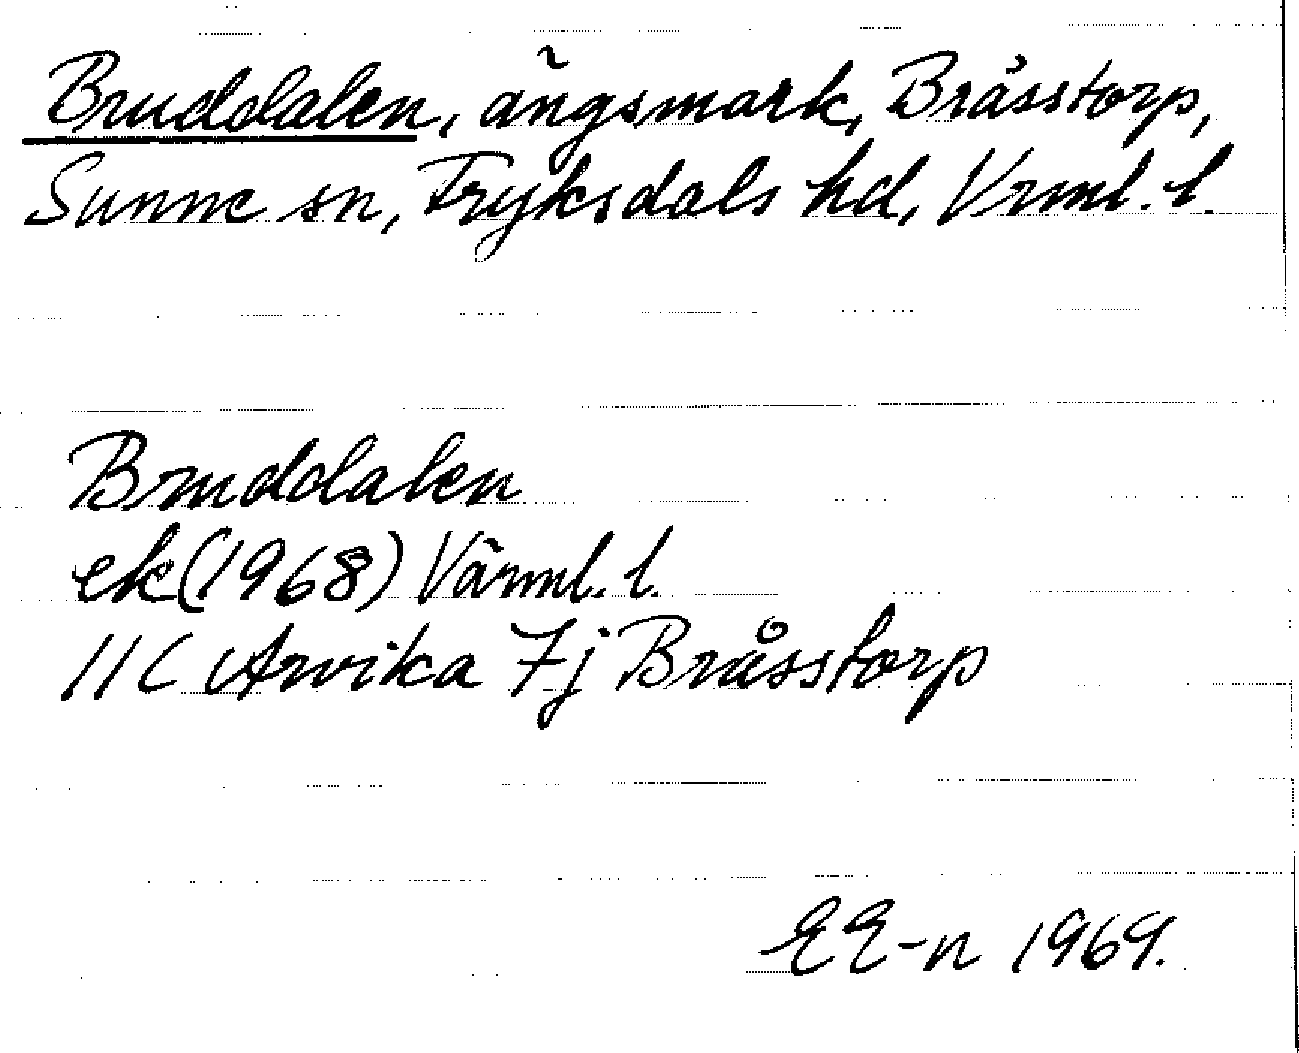 Bruddalen, ängsmark, Bråsstorp,
Sunne sn, Fryksdals hd, Vrml. l.
Bruddalen
ek (1968) Värml. l.
11C Arvika 7j Bråsstorp
EE-n 1969.